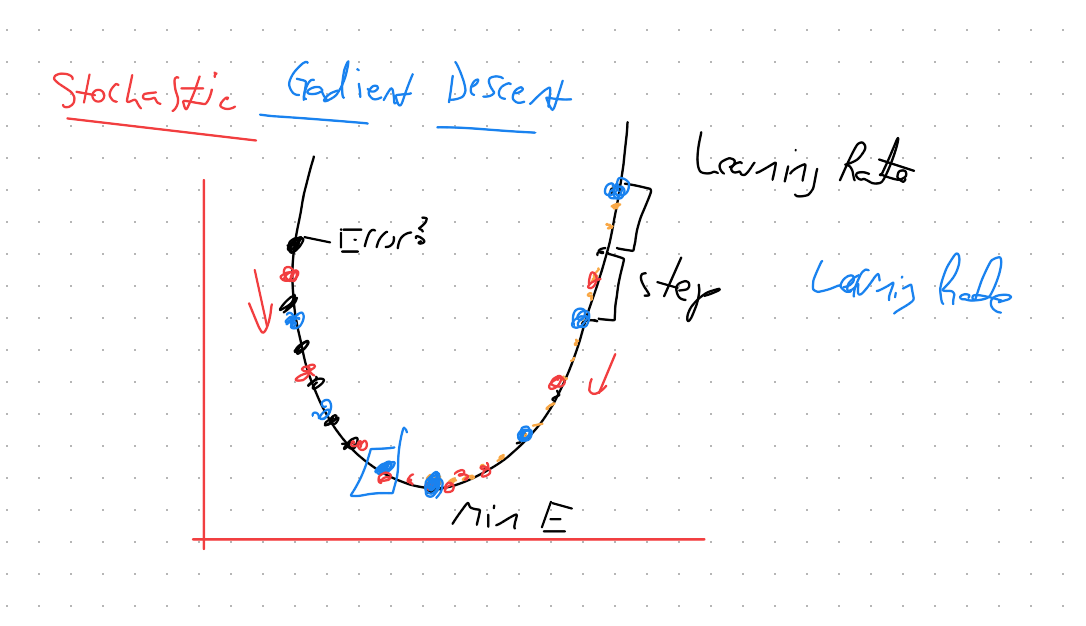 Stochastic Gradient Descent
Learning Rate
Error?
step
Learnig Rate
Min E